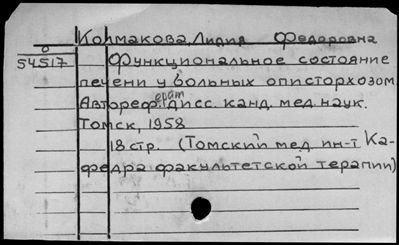 Колмакова, Лидия Федоровна
0
54517
Функциональное состояние
печени у больных описторхозом.
Автореферат дисс. канд. мед. наук.
Томск, 1958
18 стр. (Томский мед. ин-т Ка-
федра факультетской терапии)